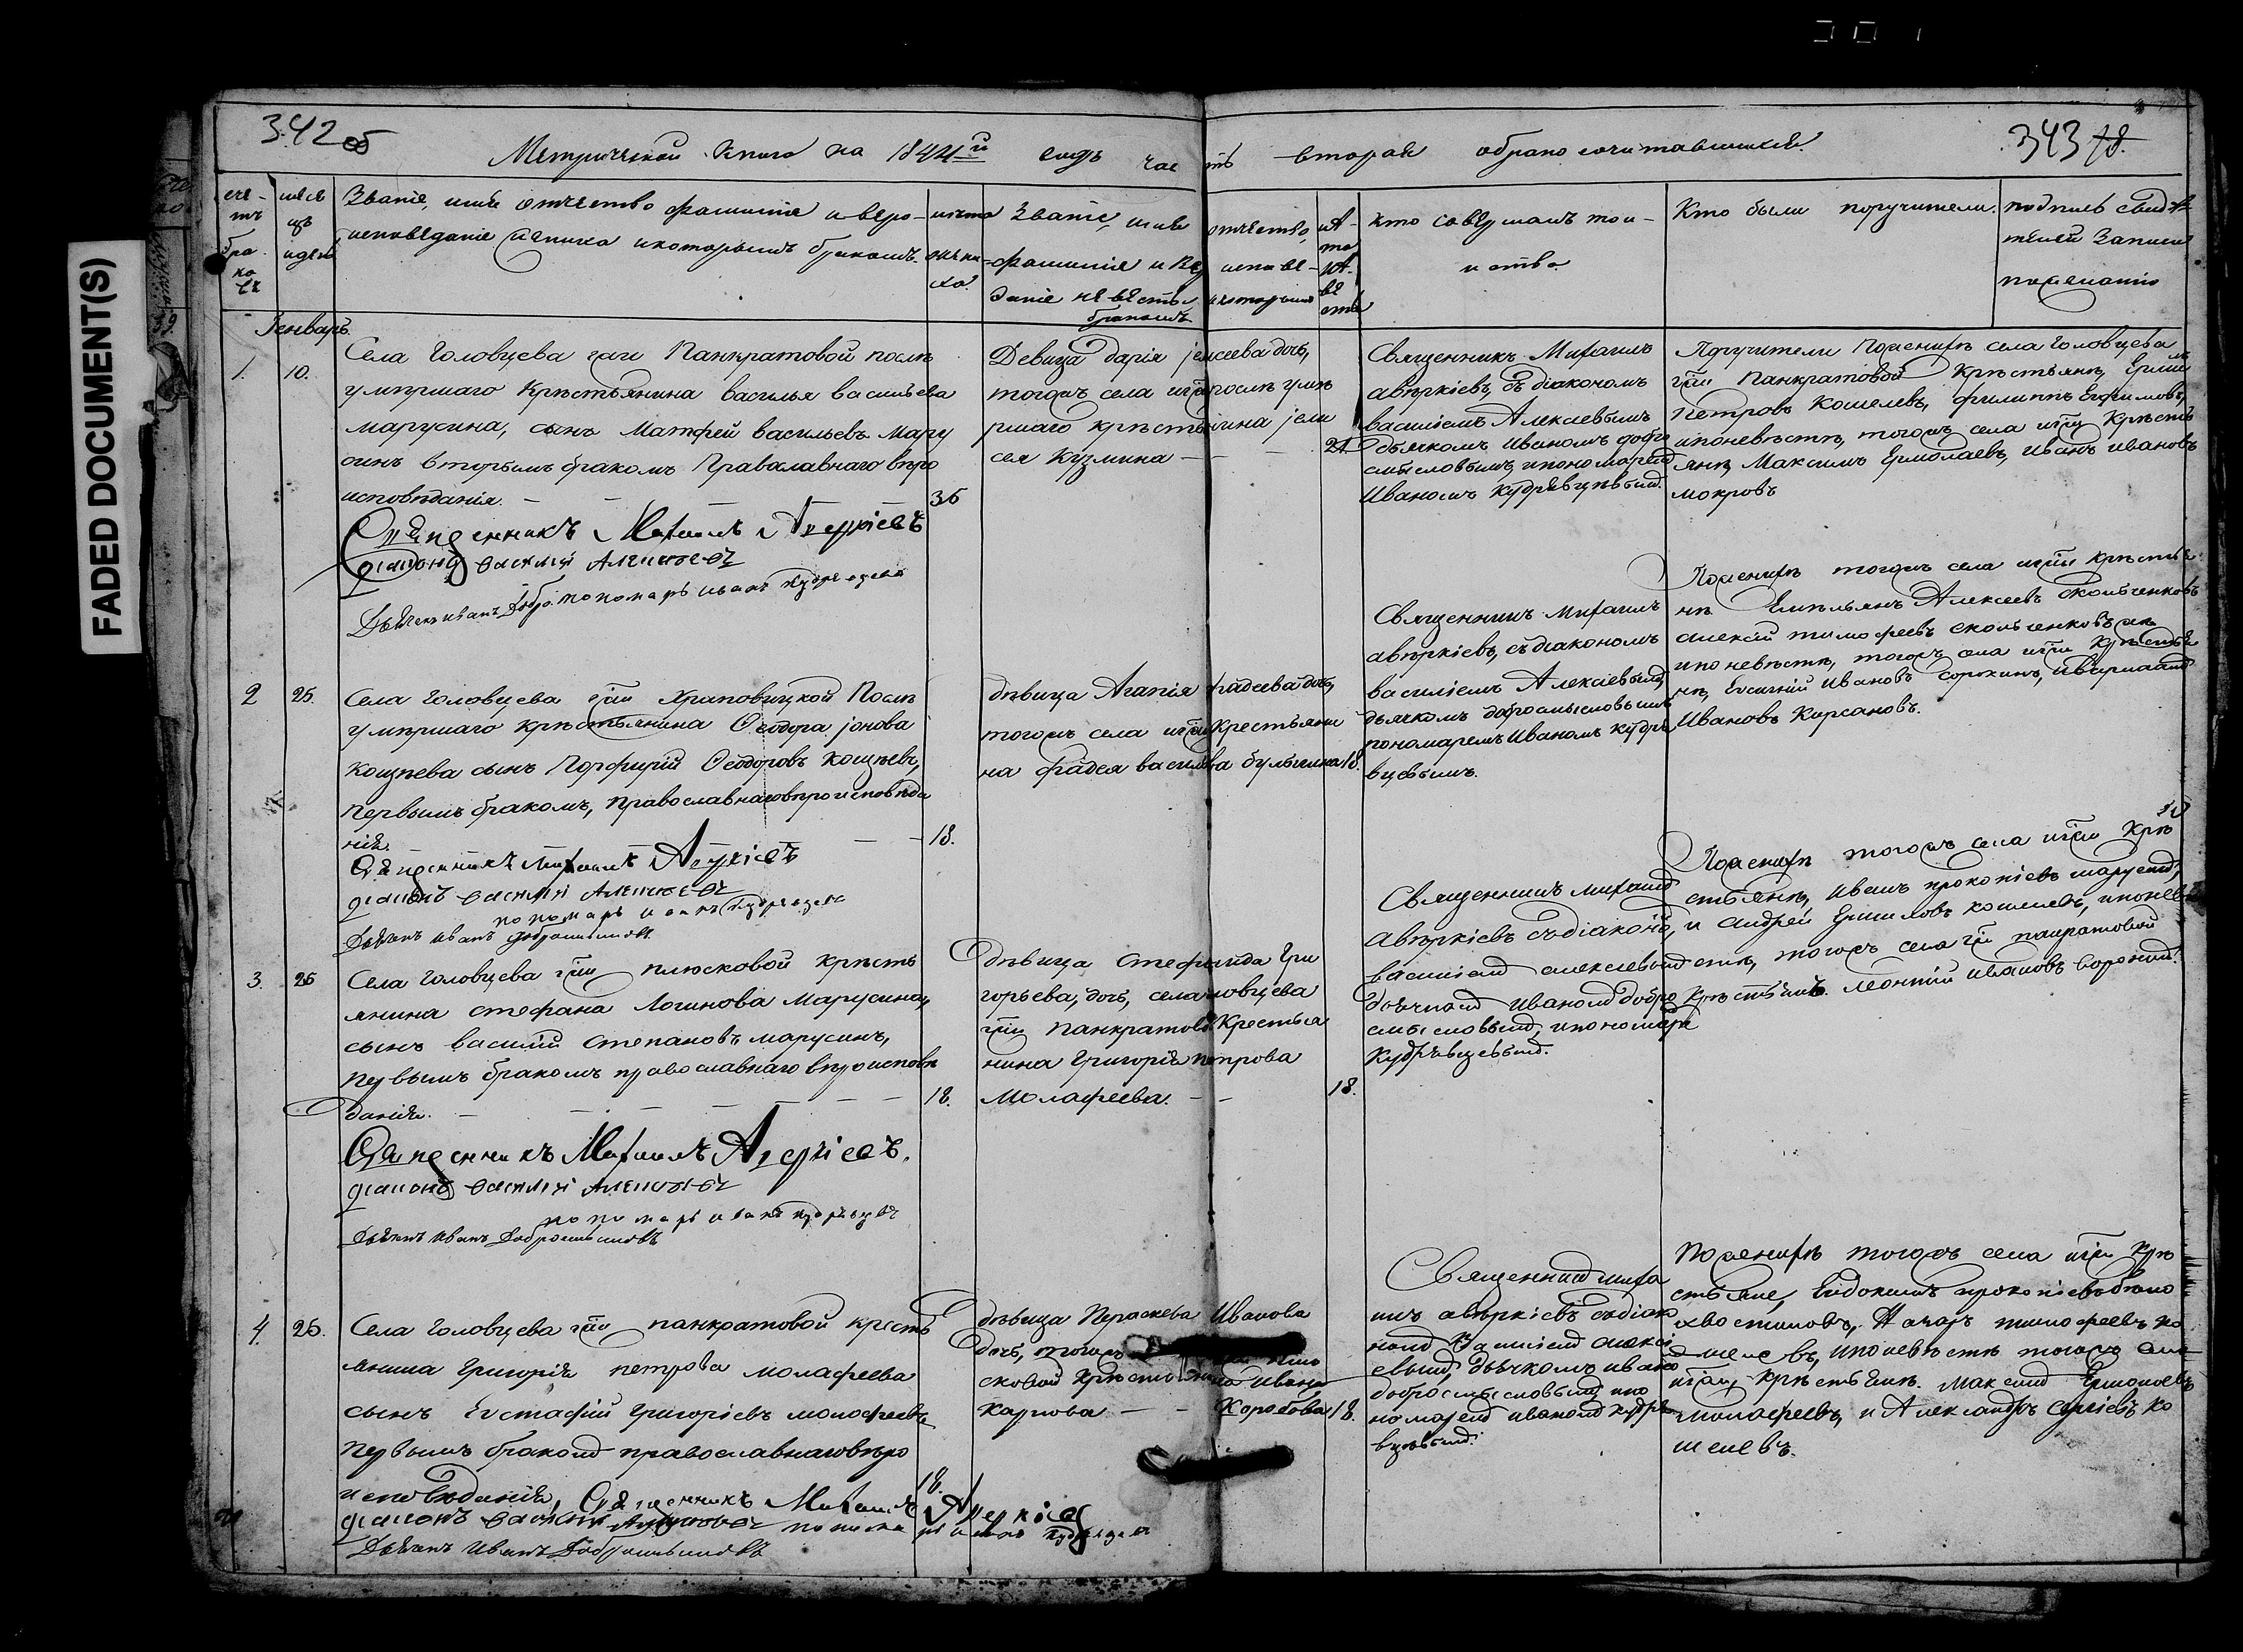 FADED DOCUMENT(S)
342 об
343
78.
Метрической книги на 1844й годъ часть вторая о бракосочитавшихся.
Званіе, имя отчество фамилія и веро-
исповеданіе жениха и которымъ бракомъ.
Званіе, имя отчество,
фамилія и испове-
даніе невесты и которымъ
бракомъ
кто совершалъ таи-
нство.
Кто были поручители.
подпись свиде
телей записи
по желанію
Генваръ
1.
10.
Села Головцева гжи Панкратовой после
умершаго крестьянина Василья Васильева
Марусина, сынъ Матфей Васильевъ Мару
синъ вторымъ бракомъ Православнаго веро
исповѣданія.
36
Священникъ Михаилъ Аверкіевъ
діаконъ Василій Алексѣевъ
Дьячекъ Иванъ Добро. пономарь Иванъ Кудрявцевъ
Девица Дарія дочь,
тогожъ села игжи послѣ уме
ршаго крестьянина
сея Кузмина
21
Священникъ Михаилъ
Авѣркіевъ, съ діакономъ
Василіемъ Алексѣевымъ
дьячкомъ Иваномъ Добро
смысловымъ и пономаремъ
Иваномъ Кудрявцевымъ.
Поручители Поженихѣ села Головцева
гжи Панкратовой Крѣстьянѣ,
Петровъ Кошелевъ, Филиппъ Ефимовъ,
и поневѣстѣ, тогожъ села игжи Крѣсть
янѣ, Максимъ Ермолаевъ, Иванъ Ивановъ
Мокровъ
2
25.
Села Головцева гжи Храповицкой Послѣ
умѣршаго крѣстьянина Ѳеодора Іонова
Кощѣева сынъ Порфирій Ѳеодоровъ Кощѣевъ,
Первымъ бракомъ, православнаго вѣроисповѣда
нія.
18.
Священникъ Михаилъ Аверкіевъ
діаконъ Василій Алексѣевъ
пономарь Иванъ Кудрявцевъ
Дьячекъ Иванъ Добросмысловъ
дѣвица Агапія Фадѣева дочь,
тогожъ села игжи Крестьяни
на Фадея Васильева Булычина
18.
Священникъ Михаилъ
Авѣркіевъ, съ діакономъ
Василіемъ Алексѣевымъ,
дьячкомъ Добросмысловымъ
пономаремъ Иваномъ Кудря
вцевымъ.
Поженихѣ тогожъ села игжи крѣстья
нѣ Емѣльянъ Алексѣевъ
Алексѣй Тимофеевъ
и поневѣстѣ, тогожъ села игжи Крѣстья
нѣ, Ивановъ Сорокинъ,
Ивановъ Кирсановъ.
3.
26
Села Головцева гжи Плюсковой крѣсть
янина Стефана Логинова Марусина,
сынъ Василій Степановъ Марусинъ,
первымъ бракомъ православнаго вѣроисповѣ
данія.
18.
Священникъ Михаилъ Аверкіевъ.
діаконъ Василій Алексѣевъ
пономарь Иванъ Кудрявцевъ
Дьячекъ Иванъ Добросмысловъ
дѣвица Стефанида Гри
горьева, дочь, села Головцева
гжи Панкратовой Крестья
нина Григорія Петрова
Малафеева.
18.
Священникъ Михаилъ
Авѣркіевъ съ діакономъ,
Василіемъ Алексѣевымъ
дьячкомъ Иваномъ Добро
смысловымъ, и пономаремъ
Кудрявцевымъ.
Поженихѣ тогожъ села игжи Крѣ
стьянѣ, Иванъ Прокопіевъ Марусинъ,
и Андрей Ермиловъ Кошелевъ, и поневѣ
стѣ, тогожъ села гжи Панкратовой
Крѣстьянѣ. Леонтій Ивановъ Воронинъ.
4.
26.
Села Головцева гжи Панкратовой крѣсть
янина Григорія Петрова Молафеева
сынъ Евстафій Григоріевъ Молофеевъ
первымъ бракомъ православнаго вѣро
исповѣданія,
18.
Священникъ Михаилъ Аверкіевъ
діаконъ Василій Алексѣевъ пономарь Иванъ Кудрявцевъ
Дьячекъ Иванъ Добросмысловъ
дѣвица Пераскева Иванова
дочь, тогожъ
сковой Крѣстьянина Ивана
Карпова Коробова
18.
Священникъ Миха
илъ Авѣркіевъ съ діако
номъ Василіемъ Алексѣ
евымъ, дьячкомъ Иваномъ
Добросмысловымъ и по
номаремъ Иваномъ Кудря
вцевымъ.
Поженихѣ тогожъ села игжи Крѣ
стьяне, Евдокимъ Прокопіевъ Бѣло
хвостиковъ, Тимофеевъ Ко
шелевъ, и поневѣстѣ тогожъ села
игжи Крѣстьянѣ. Максимъ Ермолаевъ
Молафеевъ, и Александръ Сергіевъ Ко
шелевъ.